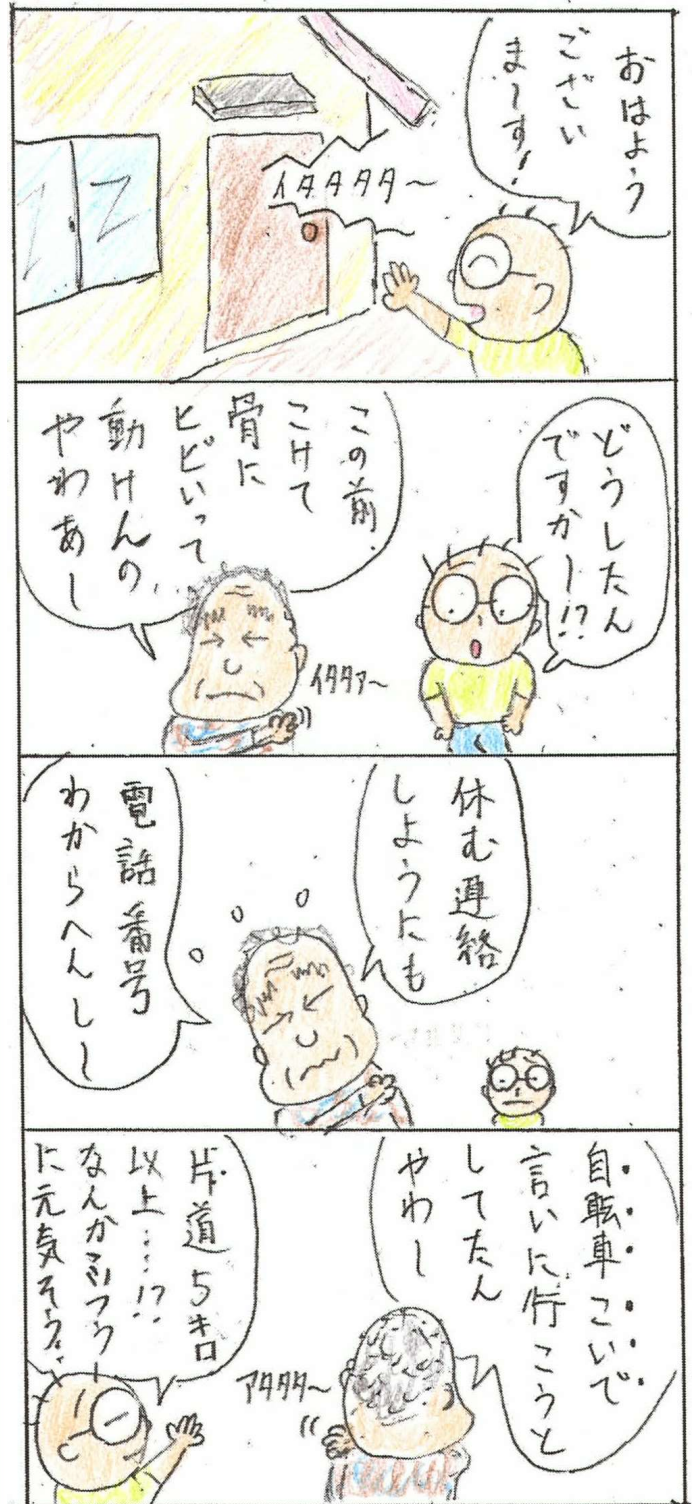 おはよう
ござい
ま〜す!
イタタタタ〜
どうしたん
ですかー!?
この前
こけて
骨に
ヒビいって
動けんの
やわあー
イタタァ〜
休む連絡
しようにも
電話番号
わからへんしー
自転車こいで
言いに行こうと
してたん
やわー
アタタタ〜
片道5キロ
以上…!?
なんかフツウ
に元気そう…